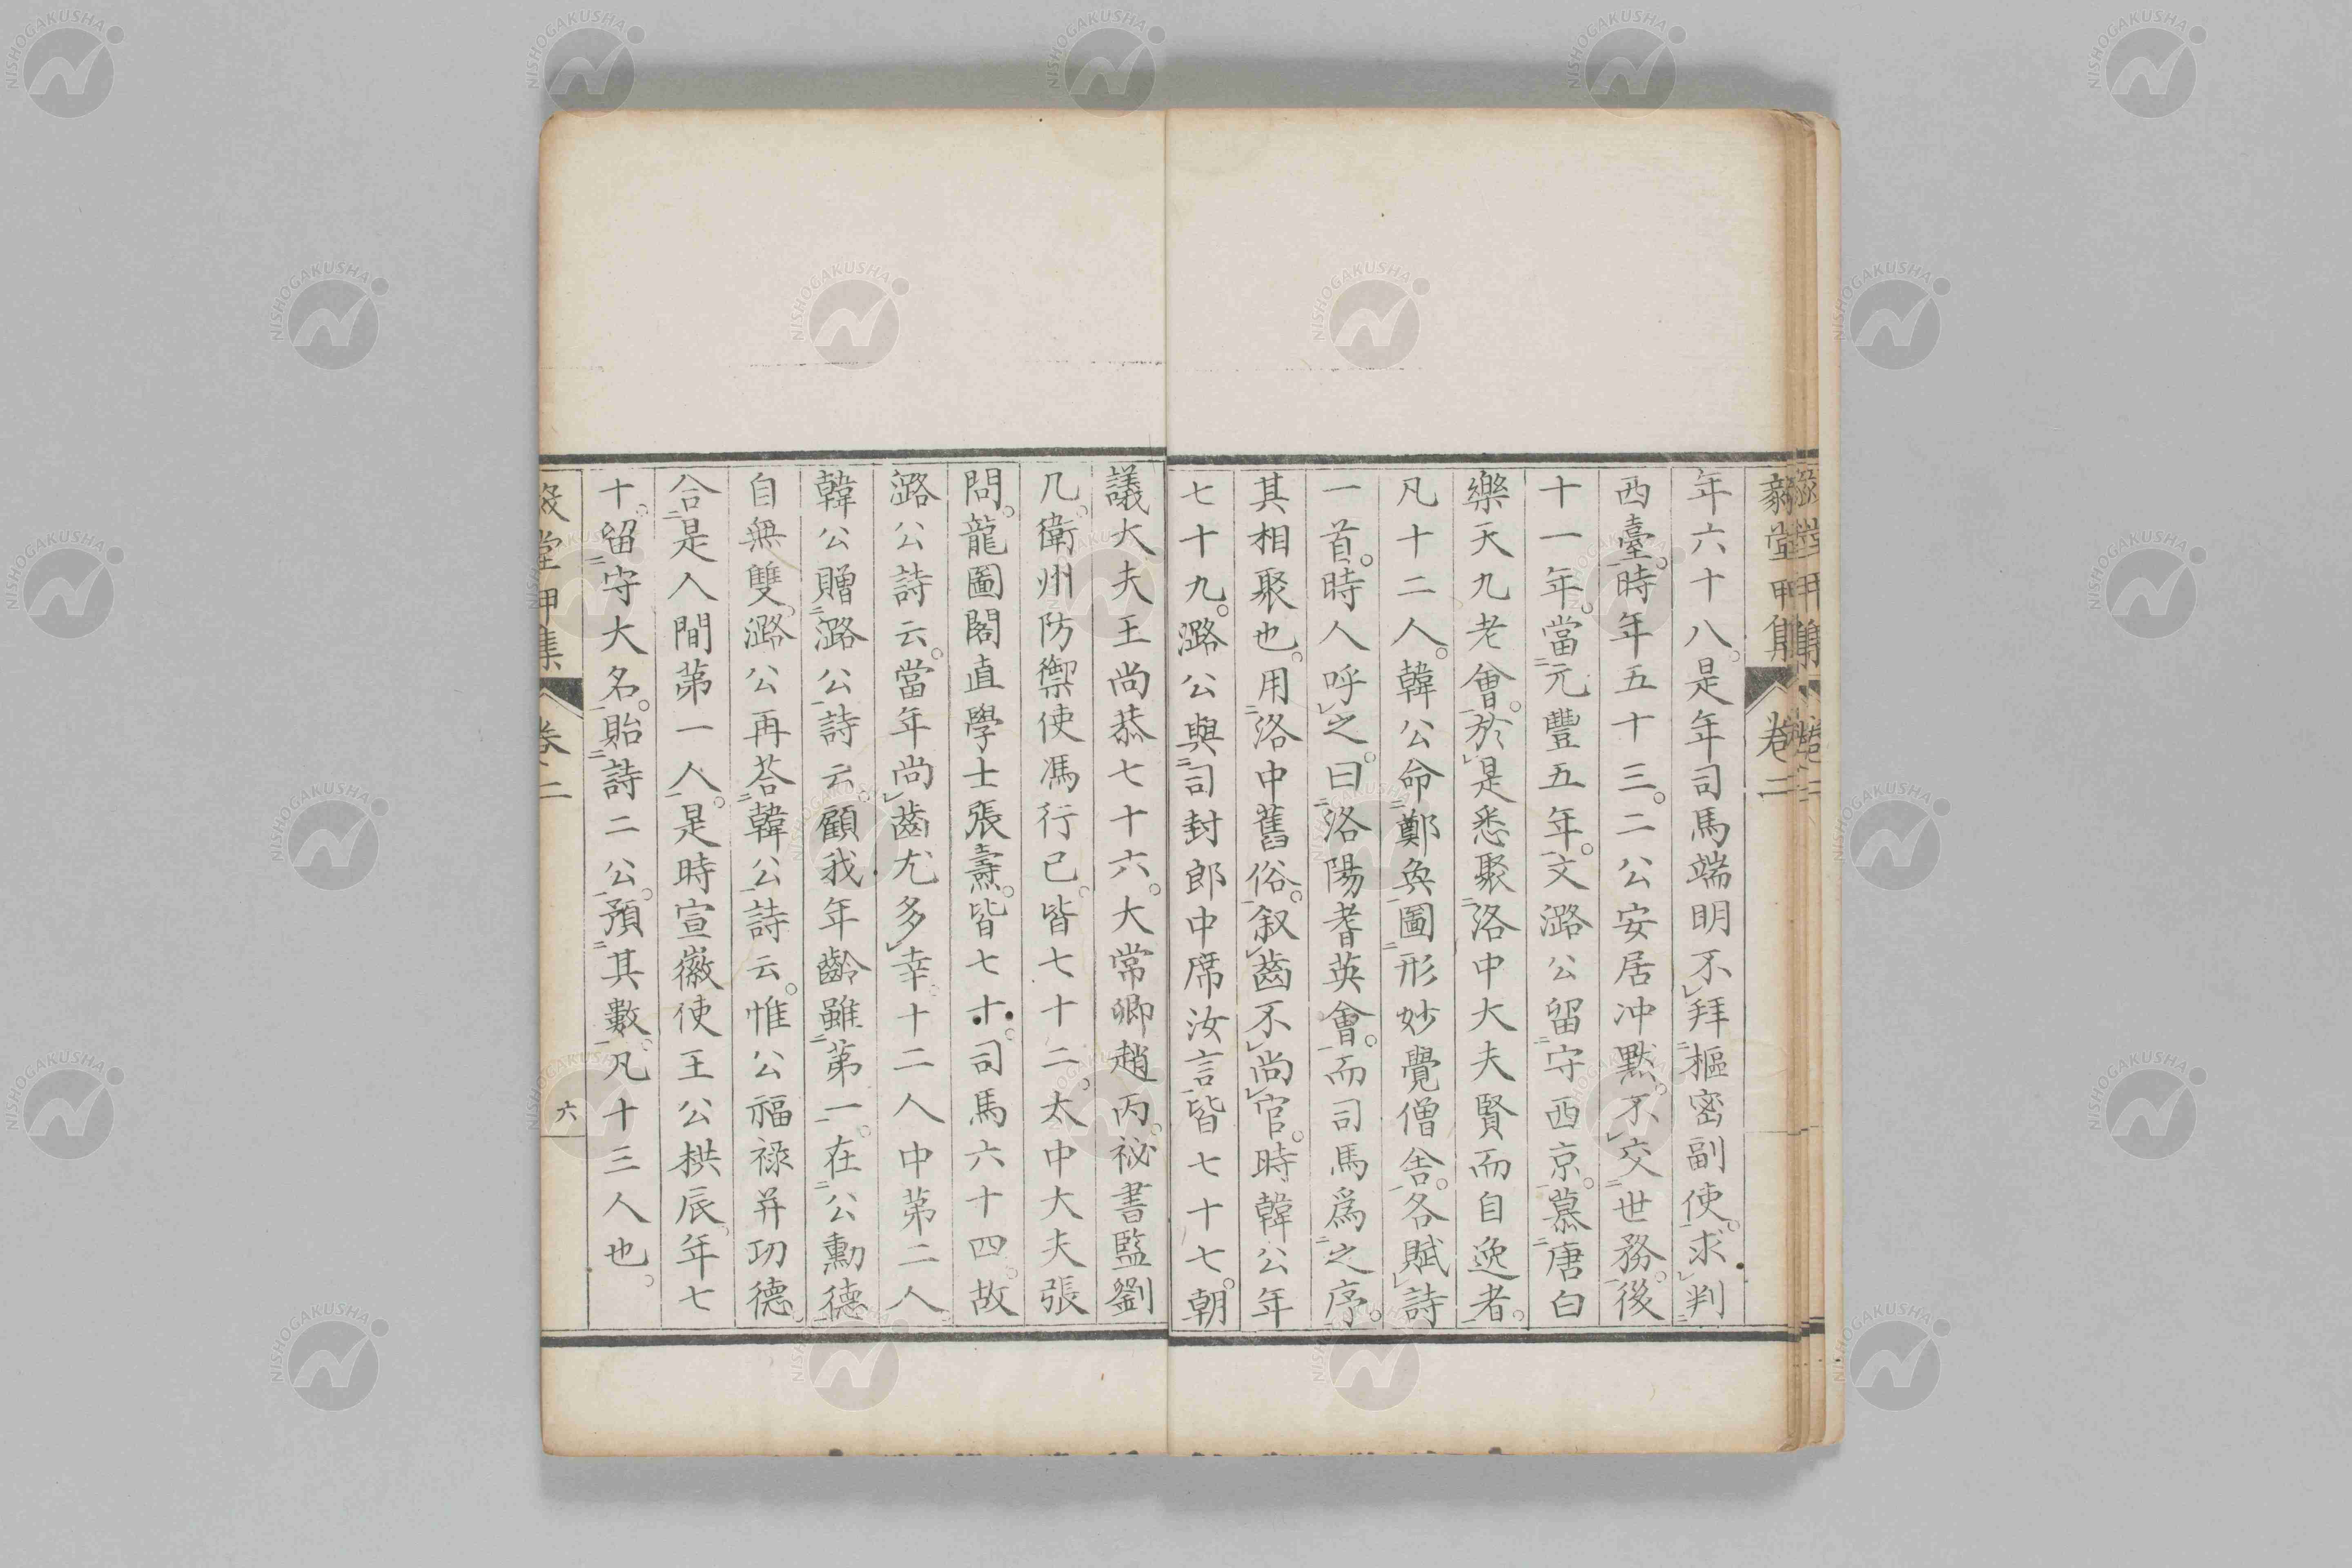 毅堂甲集 卷二
年六十八。是年司馬端明不拜樞密副使。求判
西臺。時年五十三。二公安居冲默。不交世務。後
十一年。當元豐五年。文潞公留守西京。慕唐白
樂天九老會。於是悉聚洛中大夫賢而自逸者。
凡十二人。韓公命鄭奐圖形妙覺僧舍。各賦詩
一首。時人呼之。曰洛陽耆英會。而司馬爲之序。
其相聚也。用洛中舊俗。叙齒不尚官。時韓公年
七十九。潞公與司封郎中席汝言皆七十七。朝
議大夫王尚恭七十六。大常卿趙丙。祕書監劉
几。衛州防禦使馮行己。皆七十二。太中大夫張
問。龍圖閣直學士張燾。皆七十。司馬六十四。故
潞公詩云。當年尚齒尤多幸。十二人中第二人
韓公贈潞公詩云。顧我年齡雖第一。在公勳德
自無雙。潞公再荅韓公詩云。惟公福祿并功德
合是人間第一人。是時宣徽使王公拱辰。年七
十。留守大名。貽詩二公。預其數。凡十三人也。
毅堂甲集 卷二 六
NISHOGAKUSHA